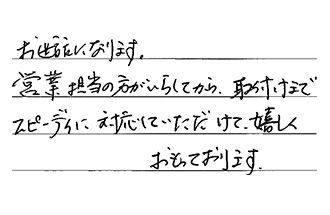 お世話になります。
営業担当の方がいらしてから、取付けまで
スピーディに対応していただけて、嬉しく
おもっております。